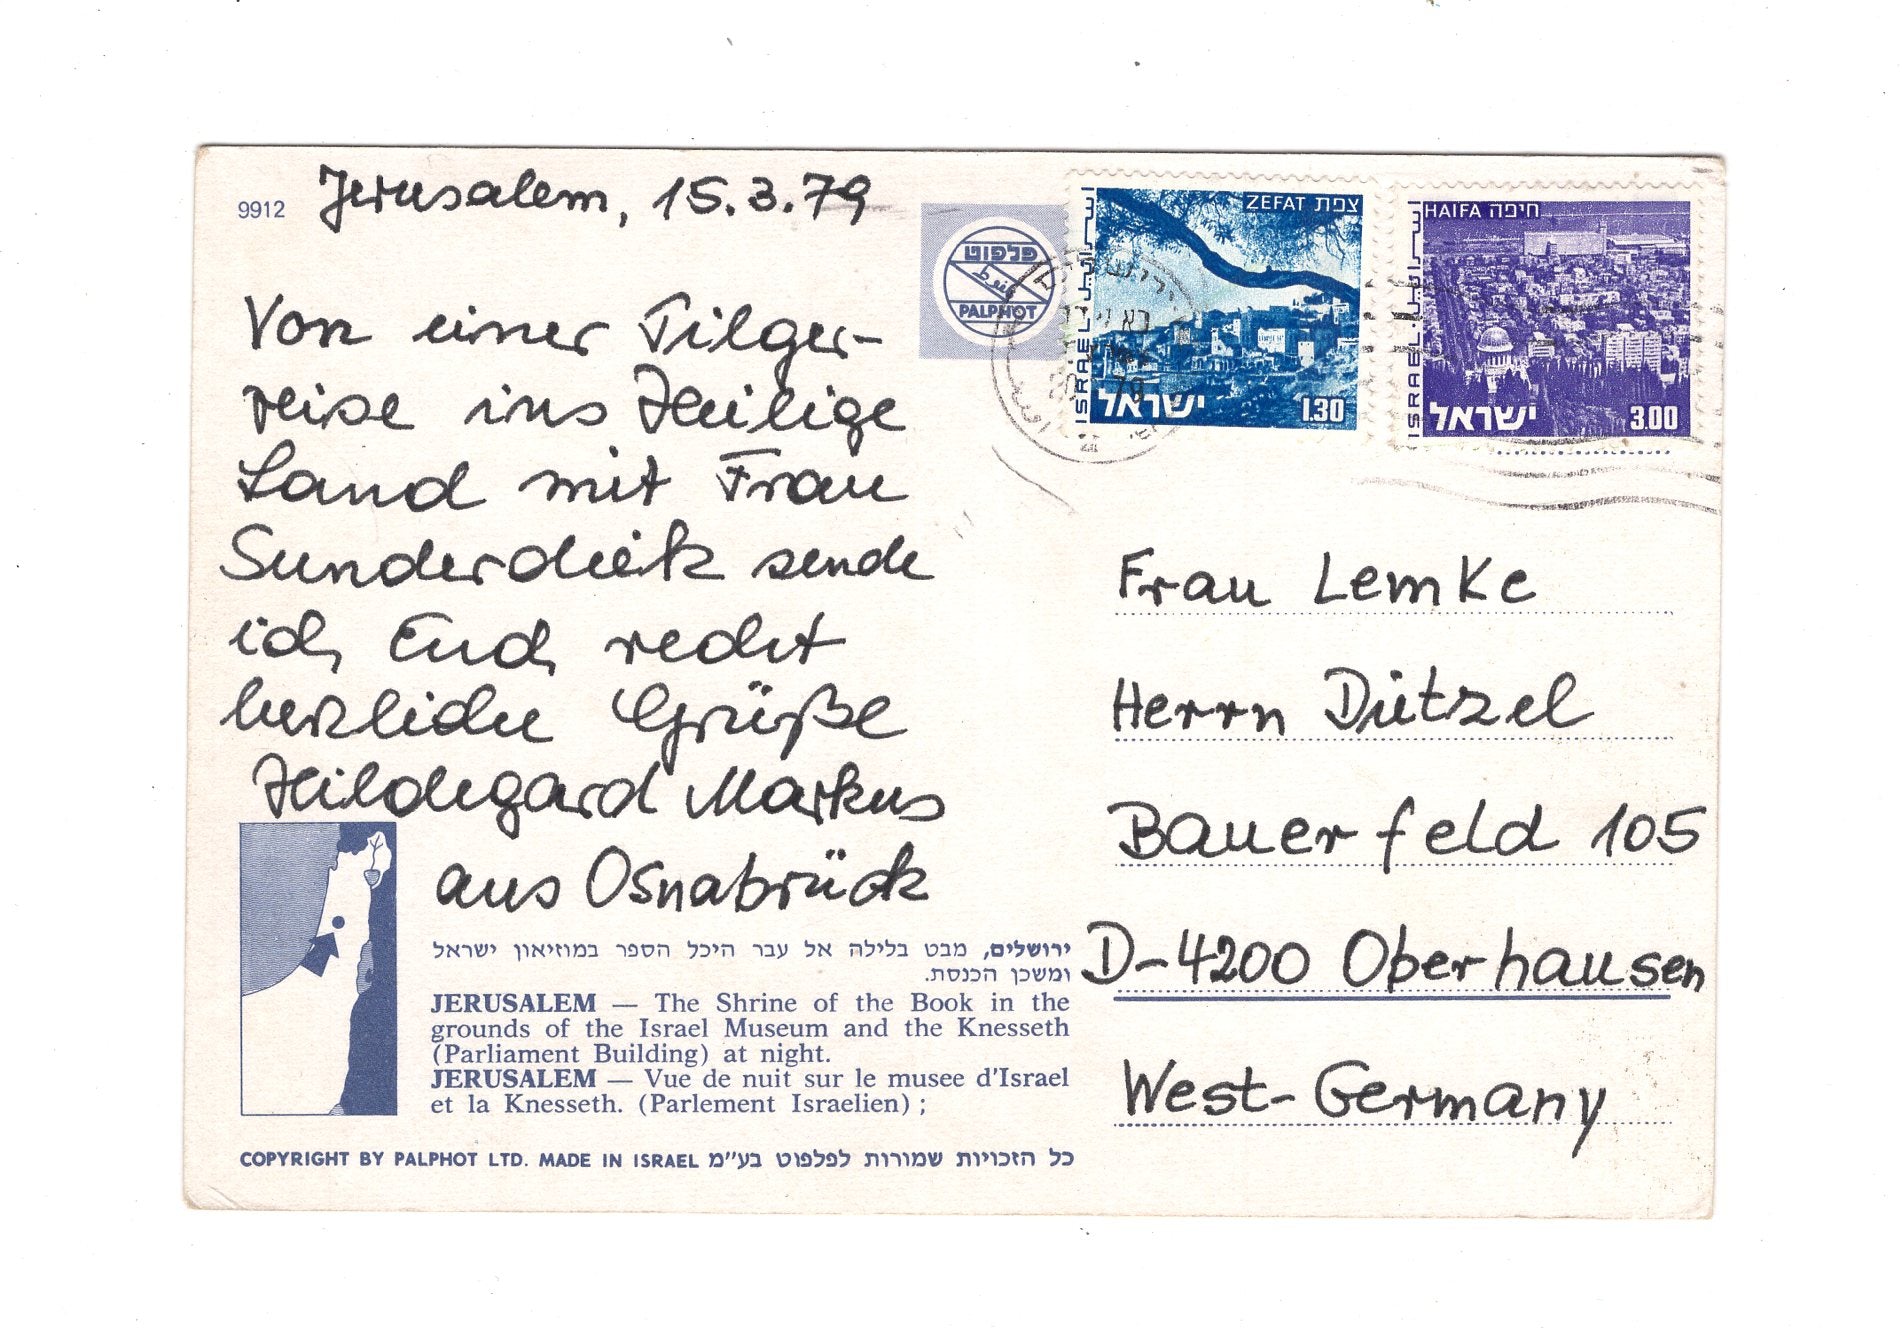 9912
Jerusalem, 15.3.79
Von einer Pilger-
reise ins Heilige
Land mit Frau
Sunderdiek sende
ich Euch recht
herzliche Grüße
Hildegard Markus
aus Osnabrück
ירושלים, מבט בלילה אל עבר היכל הספר במוזיאון ישראל
ומשכן הכנסת.
JERUSALEM — The Shrine of the Book in the
grounds of the Israel Museum and the Knesseth
(Parliament Building) at night.
JERUSALEM — Vue de nuit sur le musee d'Israel
et la Knesseth. (Parlement Israelien) ;
COPYRIGHT BY PALPHOT LTD. MADE IN ISRAEL כל הזכויות שמורות לפלפוט בע"מ
פלפוט
PALPHOT
ZEFAT צפת
إسرائيل
ISRAEL
ישראל
1.30
HAIFA חיפה
إسرائيل
ISRAEL
ישראל
3.00
79
Frau Lemke
Herrn Dützel
Bauerfeld 105
D-4200 Oberhausen
West-Germany